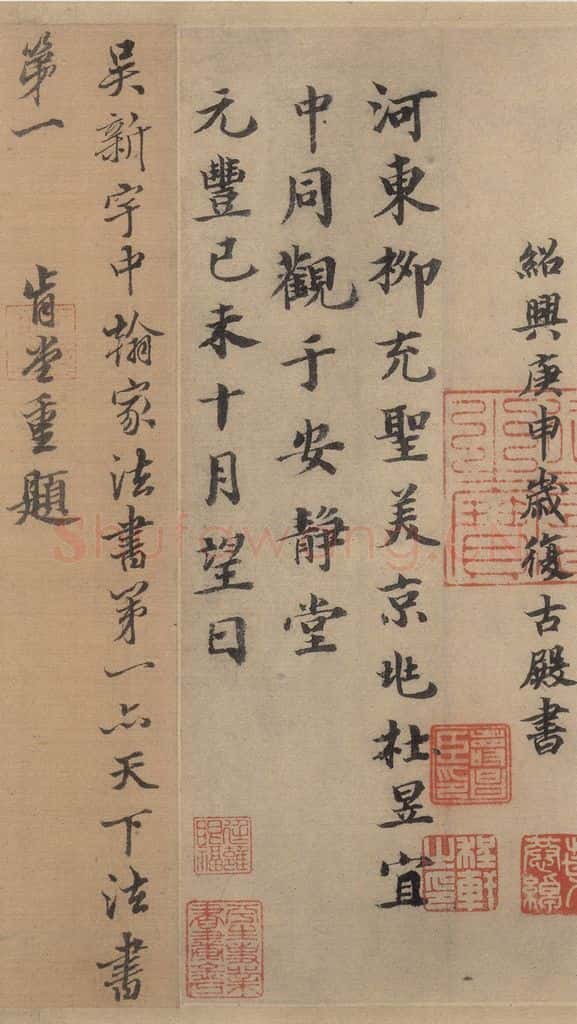 紹興庚申歲復古殿書
河東柳充聖美京兆杜昱宜
中同觀于安静堂
元豐己未十月望日
吴新宇中翰家法書第一亦天下法書
第一
肯堂重題